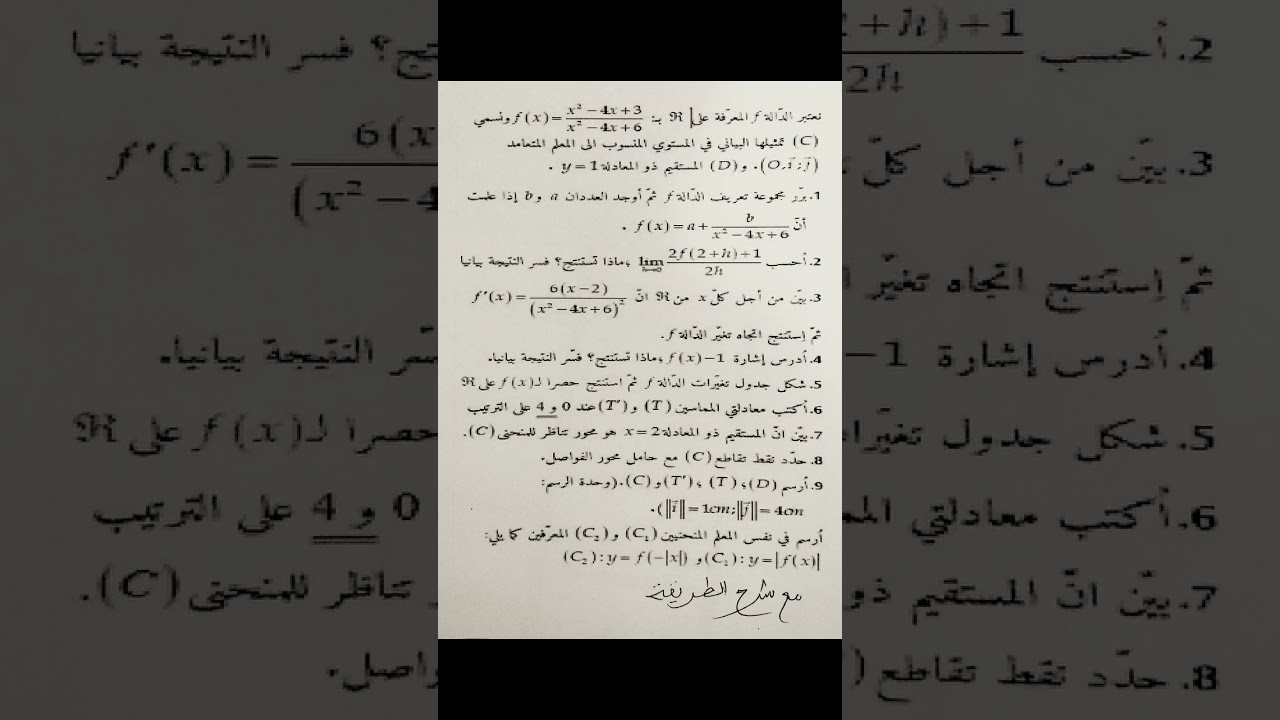 نعتبر الدّالة f المعرّفة على ℜ بـ: f(x) = (x² − 4x + 3)/(x² − 4x + 6) ونسمي
(C) تمثيلها البياني في المستوي المنسوب الى المعلم المتعامد
(O;i⃗;j⃗). و(D) المستقيم ذو المعادلة y = 1.
1. برّر مجموعة تعريف الدّالة f ثمّ أوجد العددان a و b إذا علمت
أنّ f(x) = a + b/(x² − 4x + 6).
2. أحسب lim h→0 (2f(2+h)+1)/2h ؛ماذا تستنتج؟ فسر النتيجة بيانيا
3. بيّن من أجل كلّ x من ℜ انّ f′(x) = 6(x−2)/(x² − 4x + 6)²
ثمّ إستنتج اتجاه تغيّر الدّالة f.
4. أدرس إشارة f(x) − 1 ؛ماذا تستنتج؟ فسّر النتيجة بيانيا.
5. شكل جدول تغيّرات الدّالة f ثمّ استنتج حصرا لـ f(x) على ℜ
6. أكتب معادلتي المماسين (T) و (T′) عند 0 و 4 على الترتيب
7. بيّن انّ المستقيم ذو المعادلة x = 2 هو محور تناظر للمنحنى (C).
8. حدّد نقط تقاطع (C) مع حامل محور الفواصل.
9. أرسم (D)؛ (T) ؛ (T′) و (C). (وحدة الرسم:
‖i⃗‖ = 1cm; ‖j⃗‖ = 4cm).
أرسم في نفس المعلم المنحنيين (C₁) و (C₂) المعرّفين كما يلي:
(C₁): y = |f(x)| و (C₂): y = f(−|x|)
مع شرح الطريقة